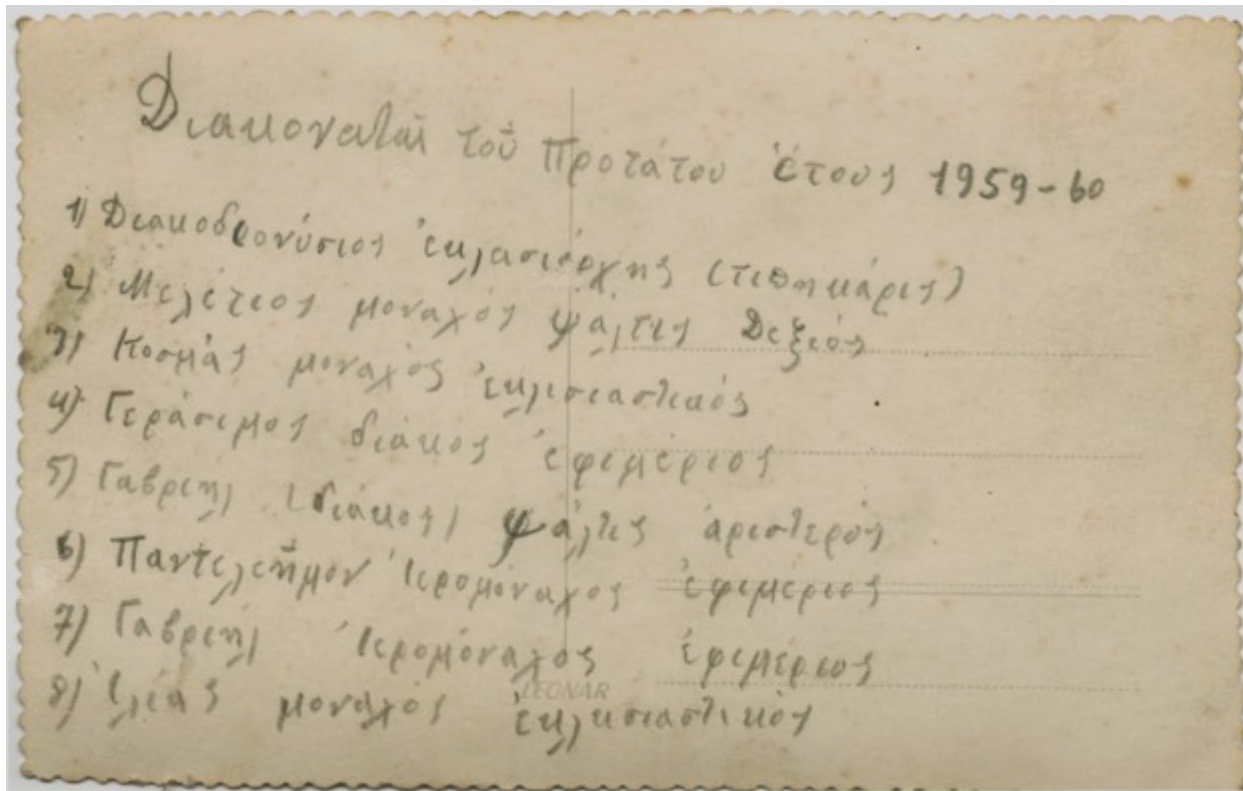 Διακοναται τοῦ Προτάτου ἔτους 1959-60
1) Διακοδιονύσιος ἐκλασιάρχης (τιπηκάρις)
2) Μελέτιος μοναχός ψάλτις Δεξιός
3) Κοσμάς μοναχός ἐκλισιαστικός
4) Γεράσιμος διάκος ἐφιμέριος
5) Γαβριήλ (διάκος) ψάλτις ἀριστερός
6) Παντελεήμον ἱερομόναχος ἐφιμέριος
7) Γαβριήλ ἱερομόναχος ἐφιμέριος
8) Ἰλίας μοναχός ἐκλησιαστικός
LEONAR